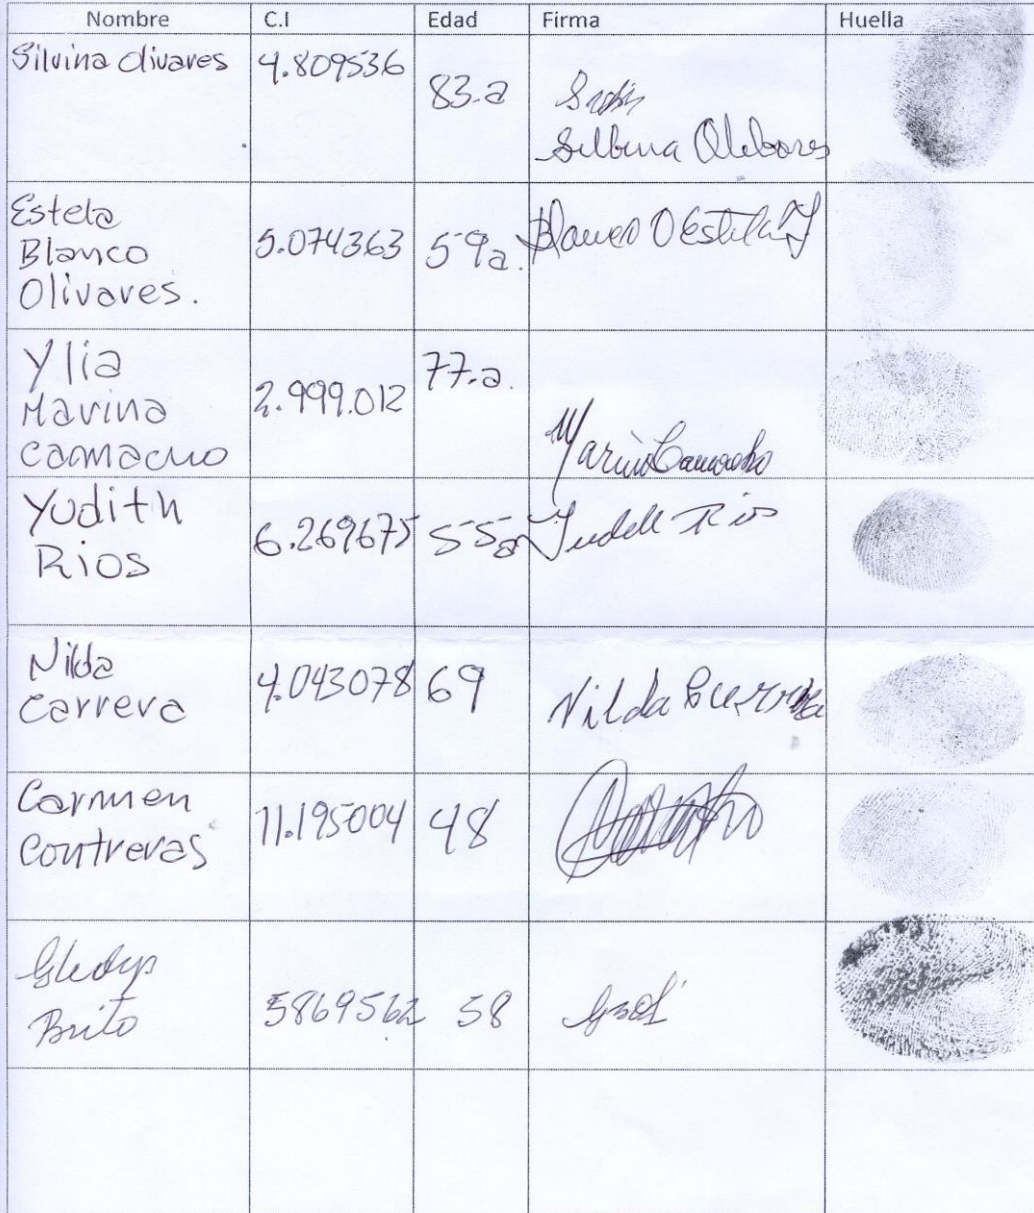 Nombre C.I Edad Firma Huella
Silvina Olivares 4.809536 83.a
Silbina Olibares
Estela Blanco Olivares. 5.074363 59a. Blanco O Estela
Ylia Marina Camacho 2.999.012 77.a. Marina Camacho
Yudith Rios 6.269675 55a Yudith Rios
Nilda Carrera 4.043078 69 Nilda Carrera
Carmen Contreras 11.195004 48
Gladys Brito 5869562 58